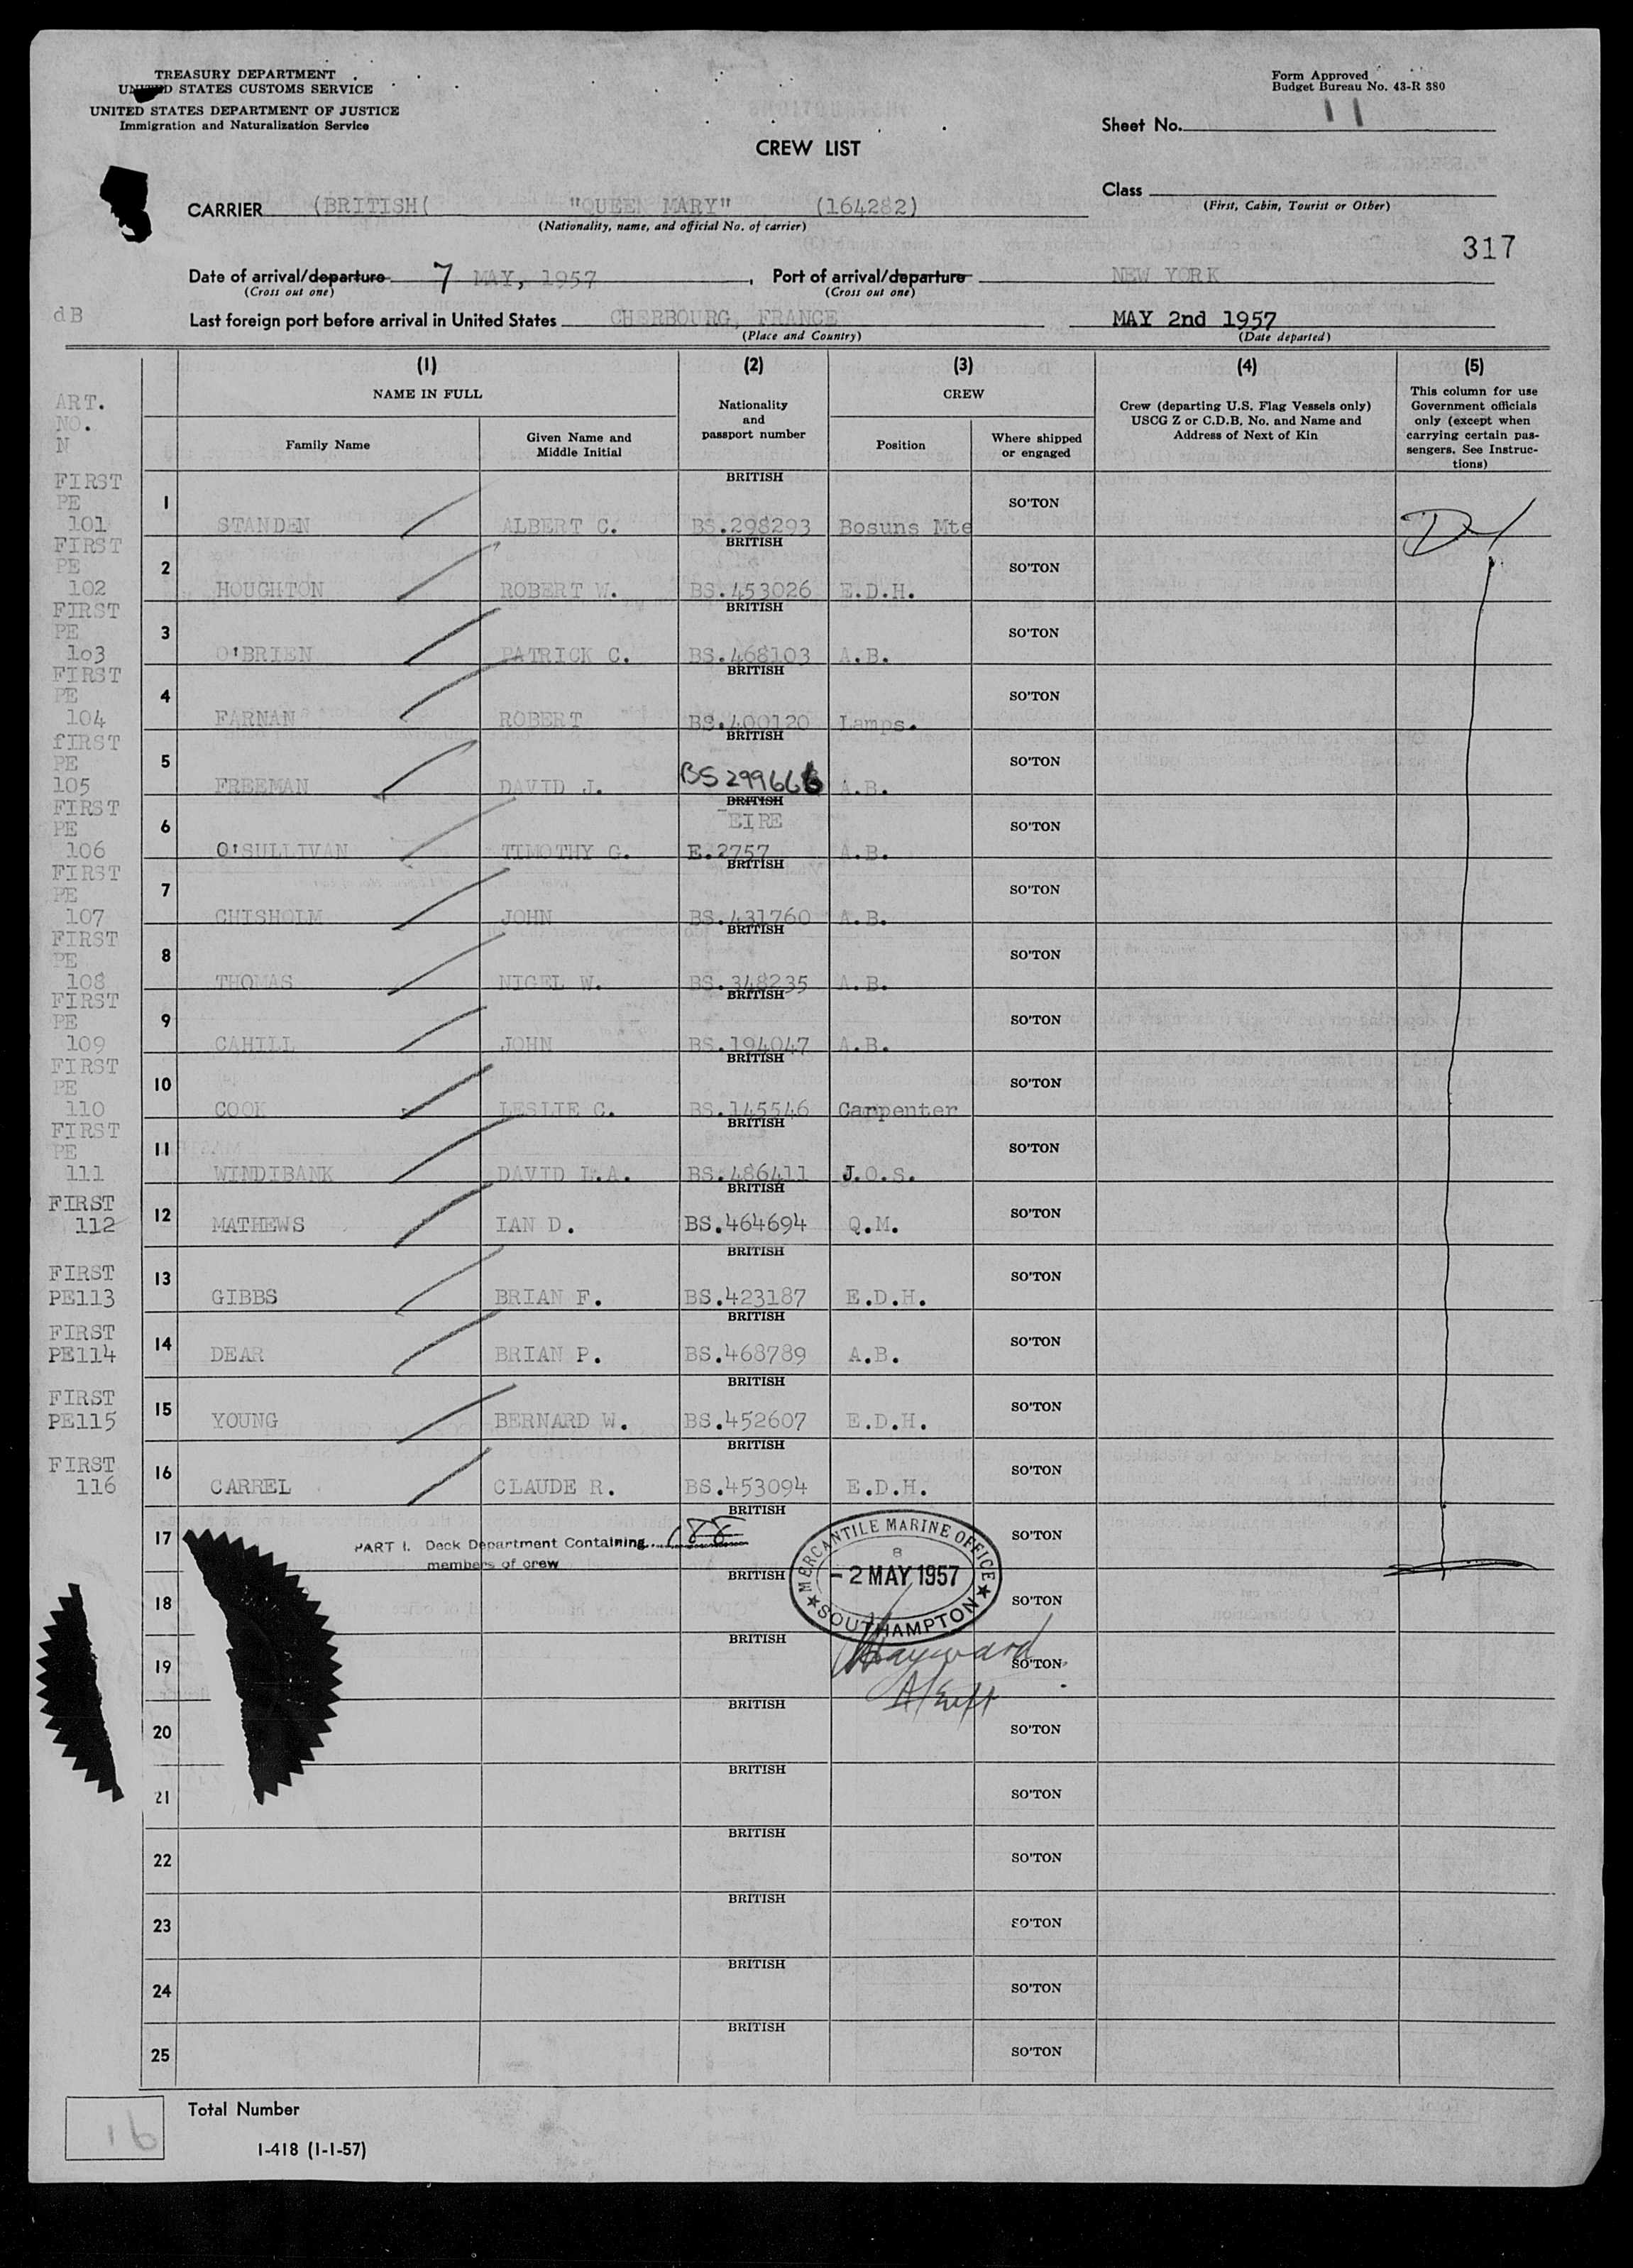 TREASURY DEPARTMENT
UNITED STATES CUSTOMS SERVICE
UNITED STATES DEPARTMENT OF JUSTICE
Immigration and Naturalization Service
Form Approved
Budget Bureau No. 43-R 380
Sheet No. 11
CREW LIST
Class
(First, Cabin, Tourist or Other)
CARRIER (BRITISH( "QUEEN MARY" (164282)
(Nationality, name, and official No. of carrier)
317
Date of arrival/departure 7 MAY, 1957, Port of arrival/departure NEW YORK
(Cross out one) (Cross out one)
dB
Last foreign port before arrival in United States CHERBOURG, FRANCE MAY 2nd 1957
(Place and Country) (Date departed)
(1) (2) (3) (4) (5)
ART.
NO.
N
NAME IN FULL
Family Name
Given Name and
Middle Initial
Nationality
and
passport number
CREW
Position
Where shipped
or engaged
Crew (departing U.S. Flag Vessels only)
USCG Z or C.D.B. No. and Name and
Address of Next of Kin
This column for use
Government officials
only (except when
carrying certain pas-
sengers. See Instruc-
tions)
FIRST BRITISH
PE 1 SO'TON
101 STANDEN ALBERT C. BS.298293 Bosuns Mte
FIRST BRITISH
PE 2 SO'TON
102 HOUGHTON ROBERT W. BS.453026 E.D.H.
FIRST BRITISH
PE 3 SO'TON
103 O'BRIEN PATRICK C. BS.468103 A.B.
FIRST BRITISH
PE 4 SO'TON
104 FARNAN ROBERT BS.400120 Lamps.
fIRST BRITISH
PE 5 SO'TON
105 FREEMAN DAVID J. BS 299666 A.B.
FIRST BRITISH
PE 6 EIRE SO'TON
106 O'SULLIVAN TIMOTHY G. E.2757 A.B.
FIRST BRITISH
PE 7 SO'TON
107 CHISHOLM JOHN BS.431760 A.B.
FIRST BRITISH
PE 8 SO'TON
108 THOMAS NIGEL W. BS.348235 A.B.
FIRST BRITISH
PE 9 SO'TON
109 CAHILL JOHN BS.194047 A.B.
FIRST BRITISH
PE 10 SO'TON
110 COOK LESLIE C. BS.145546 Carpenter
FIRST BRITISH
PE 11 SO'TON
111 WINDIBANK DAVID L.A. BS.486411 J.O.S.
FIRST BRITISH
112 12 MATHEWS IAN D. BS.464694 Q.M. SO'TON
FIRST BRITISH
PE113 13 GIBBS BRIAN F. BS.423187 E.D.H. SO'TON
FIRST BRITISH
PE114 14 DEAR BRIAN P. BS.468789 A.B. SO'TON
FIRST BRITISH
PE115 15 YOUNG BERNARD W. BS.452607 E.D.H. SO'TON
FIRST BRITISH
116 16 CARREL CLAUDE R. BS.453094 E.D.H. SO'TON
BRITISH
17 PART I. Deck Department Containing SO'TON
members of crew
MERCANTILE MARINE OFFICE
8
- 2 MAY 1957
SOUTHAMPTON
BRITISH
18 SO'TON
BRITISH
Hayward
19 SO'TON
BRITISH
20 SO'TON
BRITISH
21 SO'TON
BRITISH
22 SO'TON
BRITISH
23 SO'TON
BRITISH
24 SO'TON
BRITISH
25 SO'TON
16 Total Number
I-418 (1-1-57)